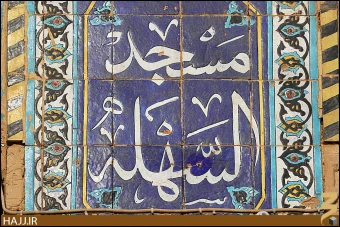 مَسْجِد
السَّهْلَه
HAJJ.IR